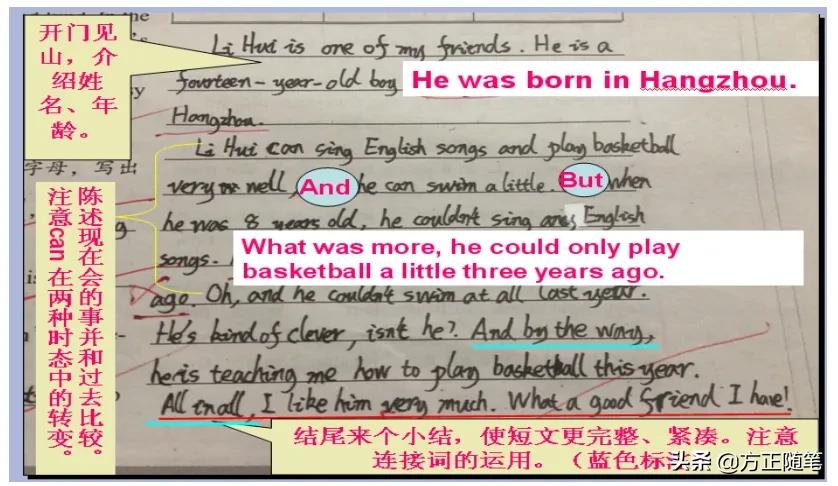 开门见
山，介
绍姓
名、年
龄。
Li Hui is one of my friends. He is a
fourteen-year-old boy
He was born in Hangzhou.
Hangzhou.
Li Hui can sing English songs and play basketball
very well, And he can swim a little. But when
he was 8 years old, he couldn't sing any English
songs.
What was more, he could only play
basketball a little three years ago.
ago. Oh, and he couldn't swim at all last year.
He's kind of clever, isn't he? And by the way,
he is teaching me how to play basketball this year.
All in all, I like him very much. What a good friend I have!
字母，写出
陈述现在会的事并和过去比较。
注意can 在两种时态中的转变。
结尾来个小结，使短文更完整、紧凑。注意
连接词的运用。（蓝色标
头条 @方正随笔